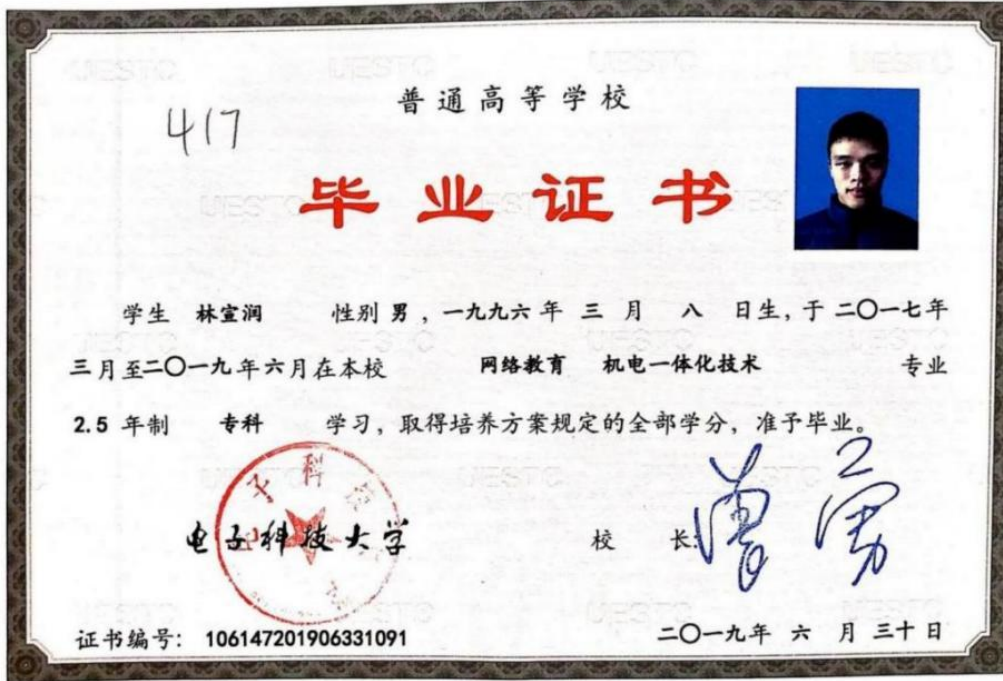 普通高等学校
417
毕业证书
学生 林宣润 性别 男，一九九六年 三 月 八 日生，于二〇一七年
三月至二〇一九年六月在本校 网络教育 机电一体化技术 专业
2.5 年制 专科 学习，取得培养方案规定的全部学分，准予毕业。
电子科技大学
校 长：
证书编号：106147201906331091
二〇一九年 六 月 三十 日